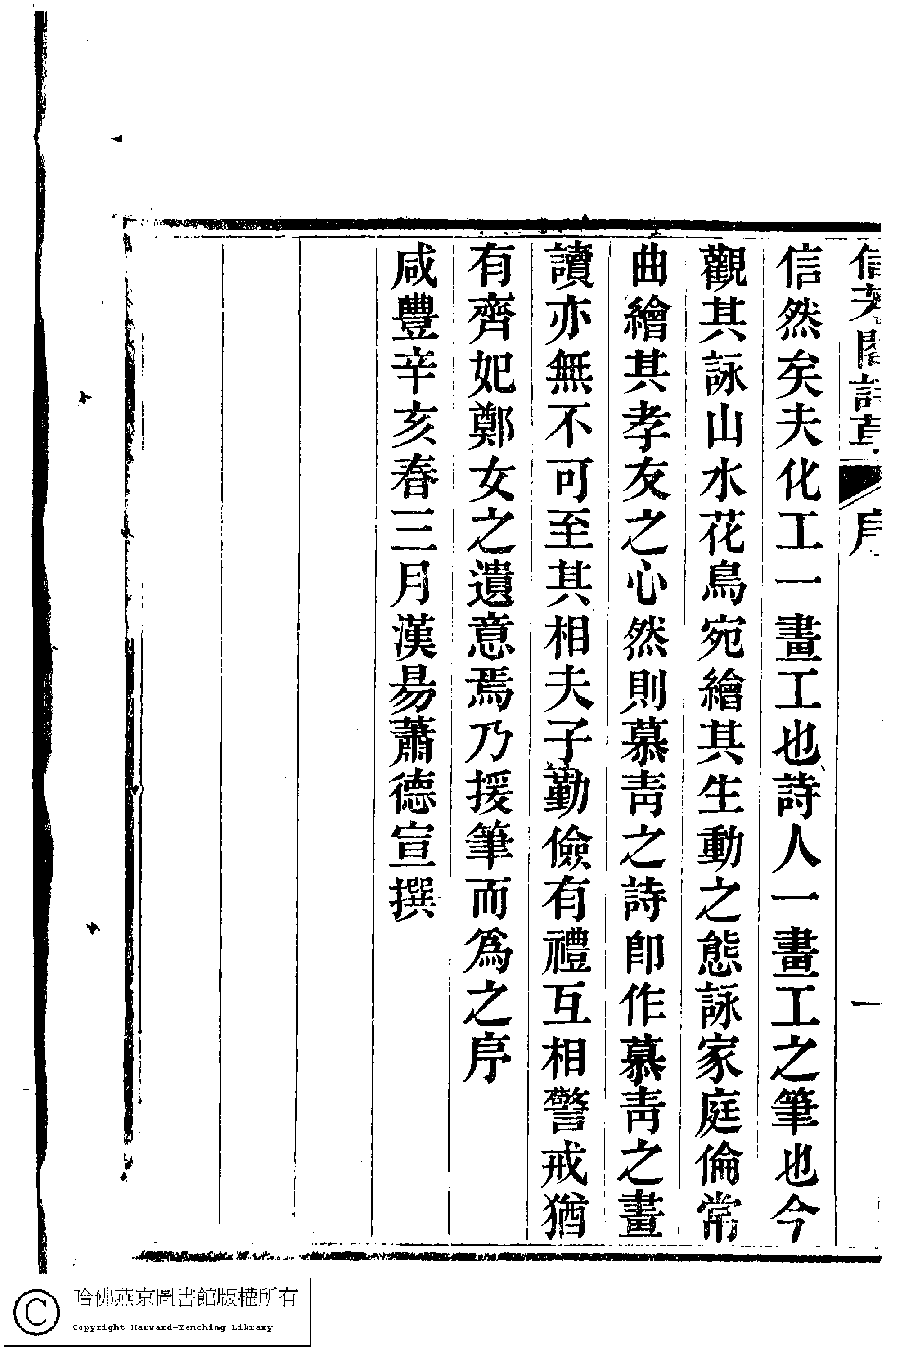 信芳閣詩草
序
一
信然矣夫化工一畫工也詩人一畫工之筆也今
觀其詠山水花鳥宛繪其生動之態詠家庭倫常
曲繪其孝友之心然則慕青之詩即作慕青之畫
讀亦無不可至其相夫子勤儉有禮互相警戒猶
有齊妃鄭女之遺意焉乃援筆而為之序
咸豐辛亥春三月漢昜蕭德宣撰
哈佛燕京圖書館版權所有
Copyright Harvard-Yenching Library